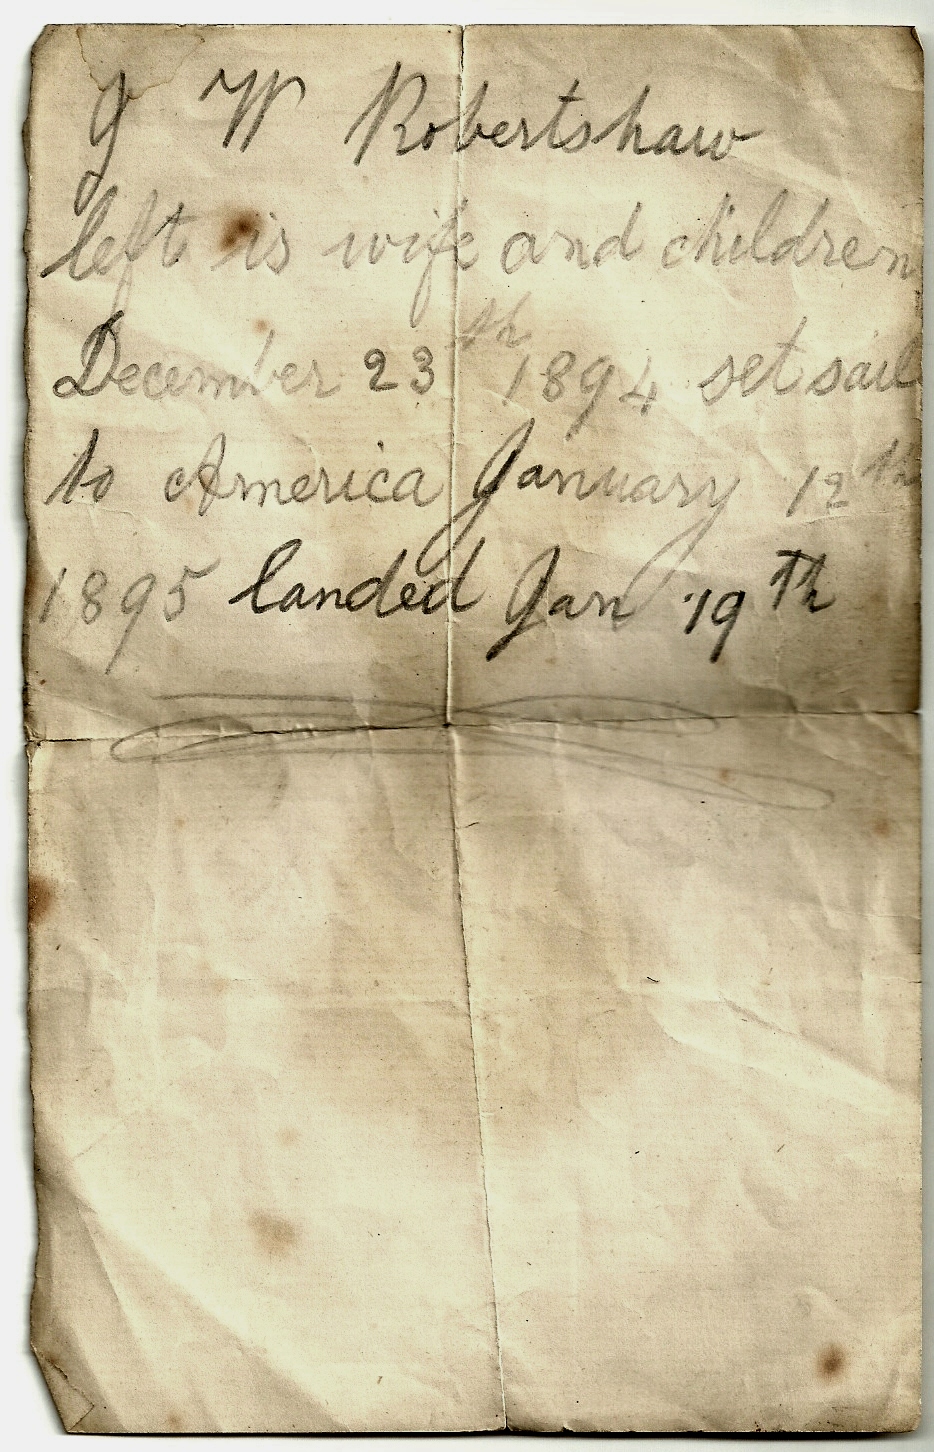 J W Robertshaw
left is wife and children
December 23th 1894 set sail
to America January 12th
1895 landed Jan 19th